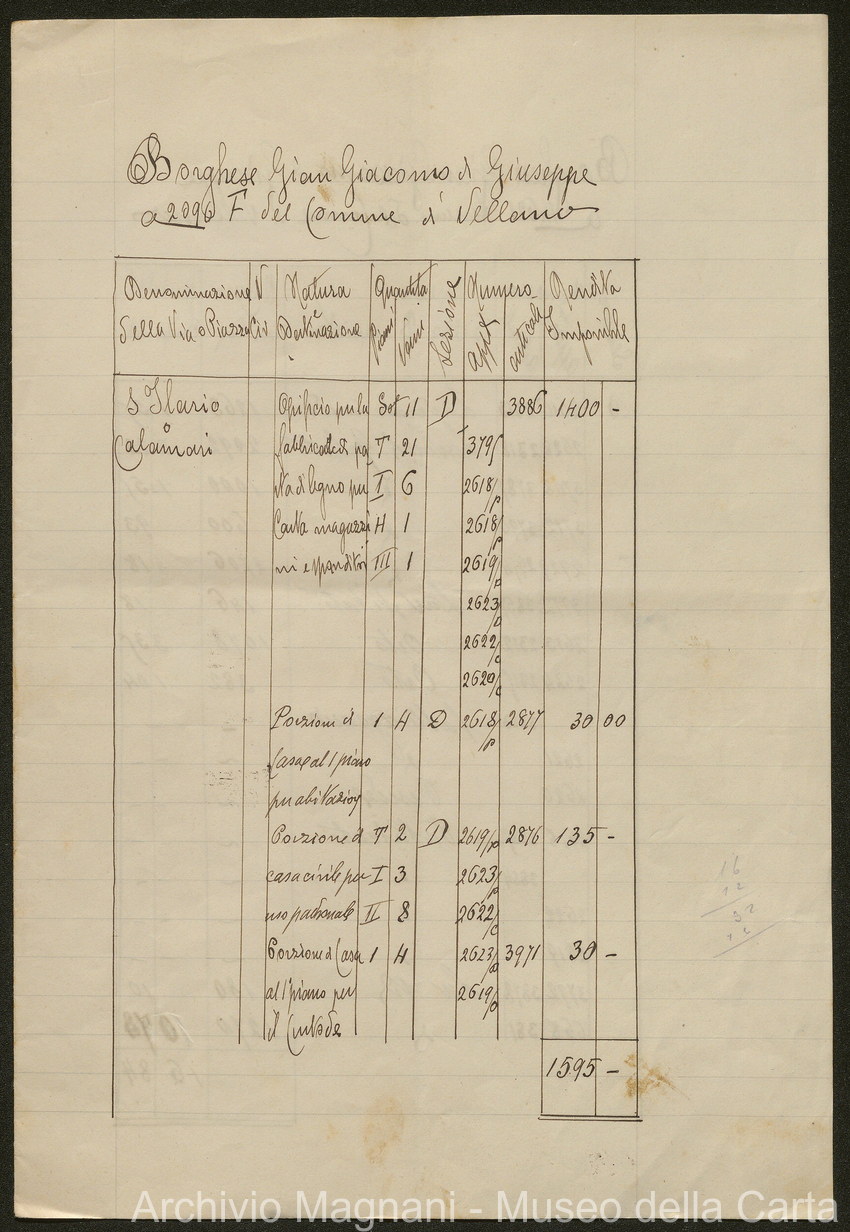 Borghese Gian Giacomo di Giuseppe
a 2096 F del Comune di Vellano
Denominazione V Natura Quantità Sezione Numero Rendita
della Via o Piazza Civ e Destinazione Piani Vani articoli Imponibile
S Ilario Opificio per la Sot 11 D 3886 1400 -
o Calamari T 21 379
ta di legno per I 6 2618/p
Carta magazzi H 1 2618/p
ni e III 1 2619/p
2623/p
2622/c
2620/c
Porzione di 1 4 D 2618/p 2877 30 00
Casa al 1 piano
per abitazion
Porzione di T 2 D 2619/p 2876 135 -
casa civile per I 3 2623/p
uso padronale II 8 2622/c
Porzione di Casa 1 4 2623/p 3971 30 -
al 1 piano per 2619/p
il Custode
1595 -
16
12
32
12
Archivio Magnani - Museo della Carta